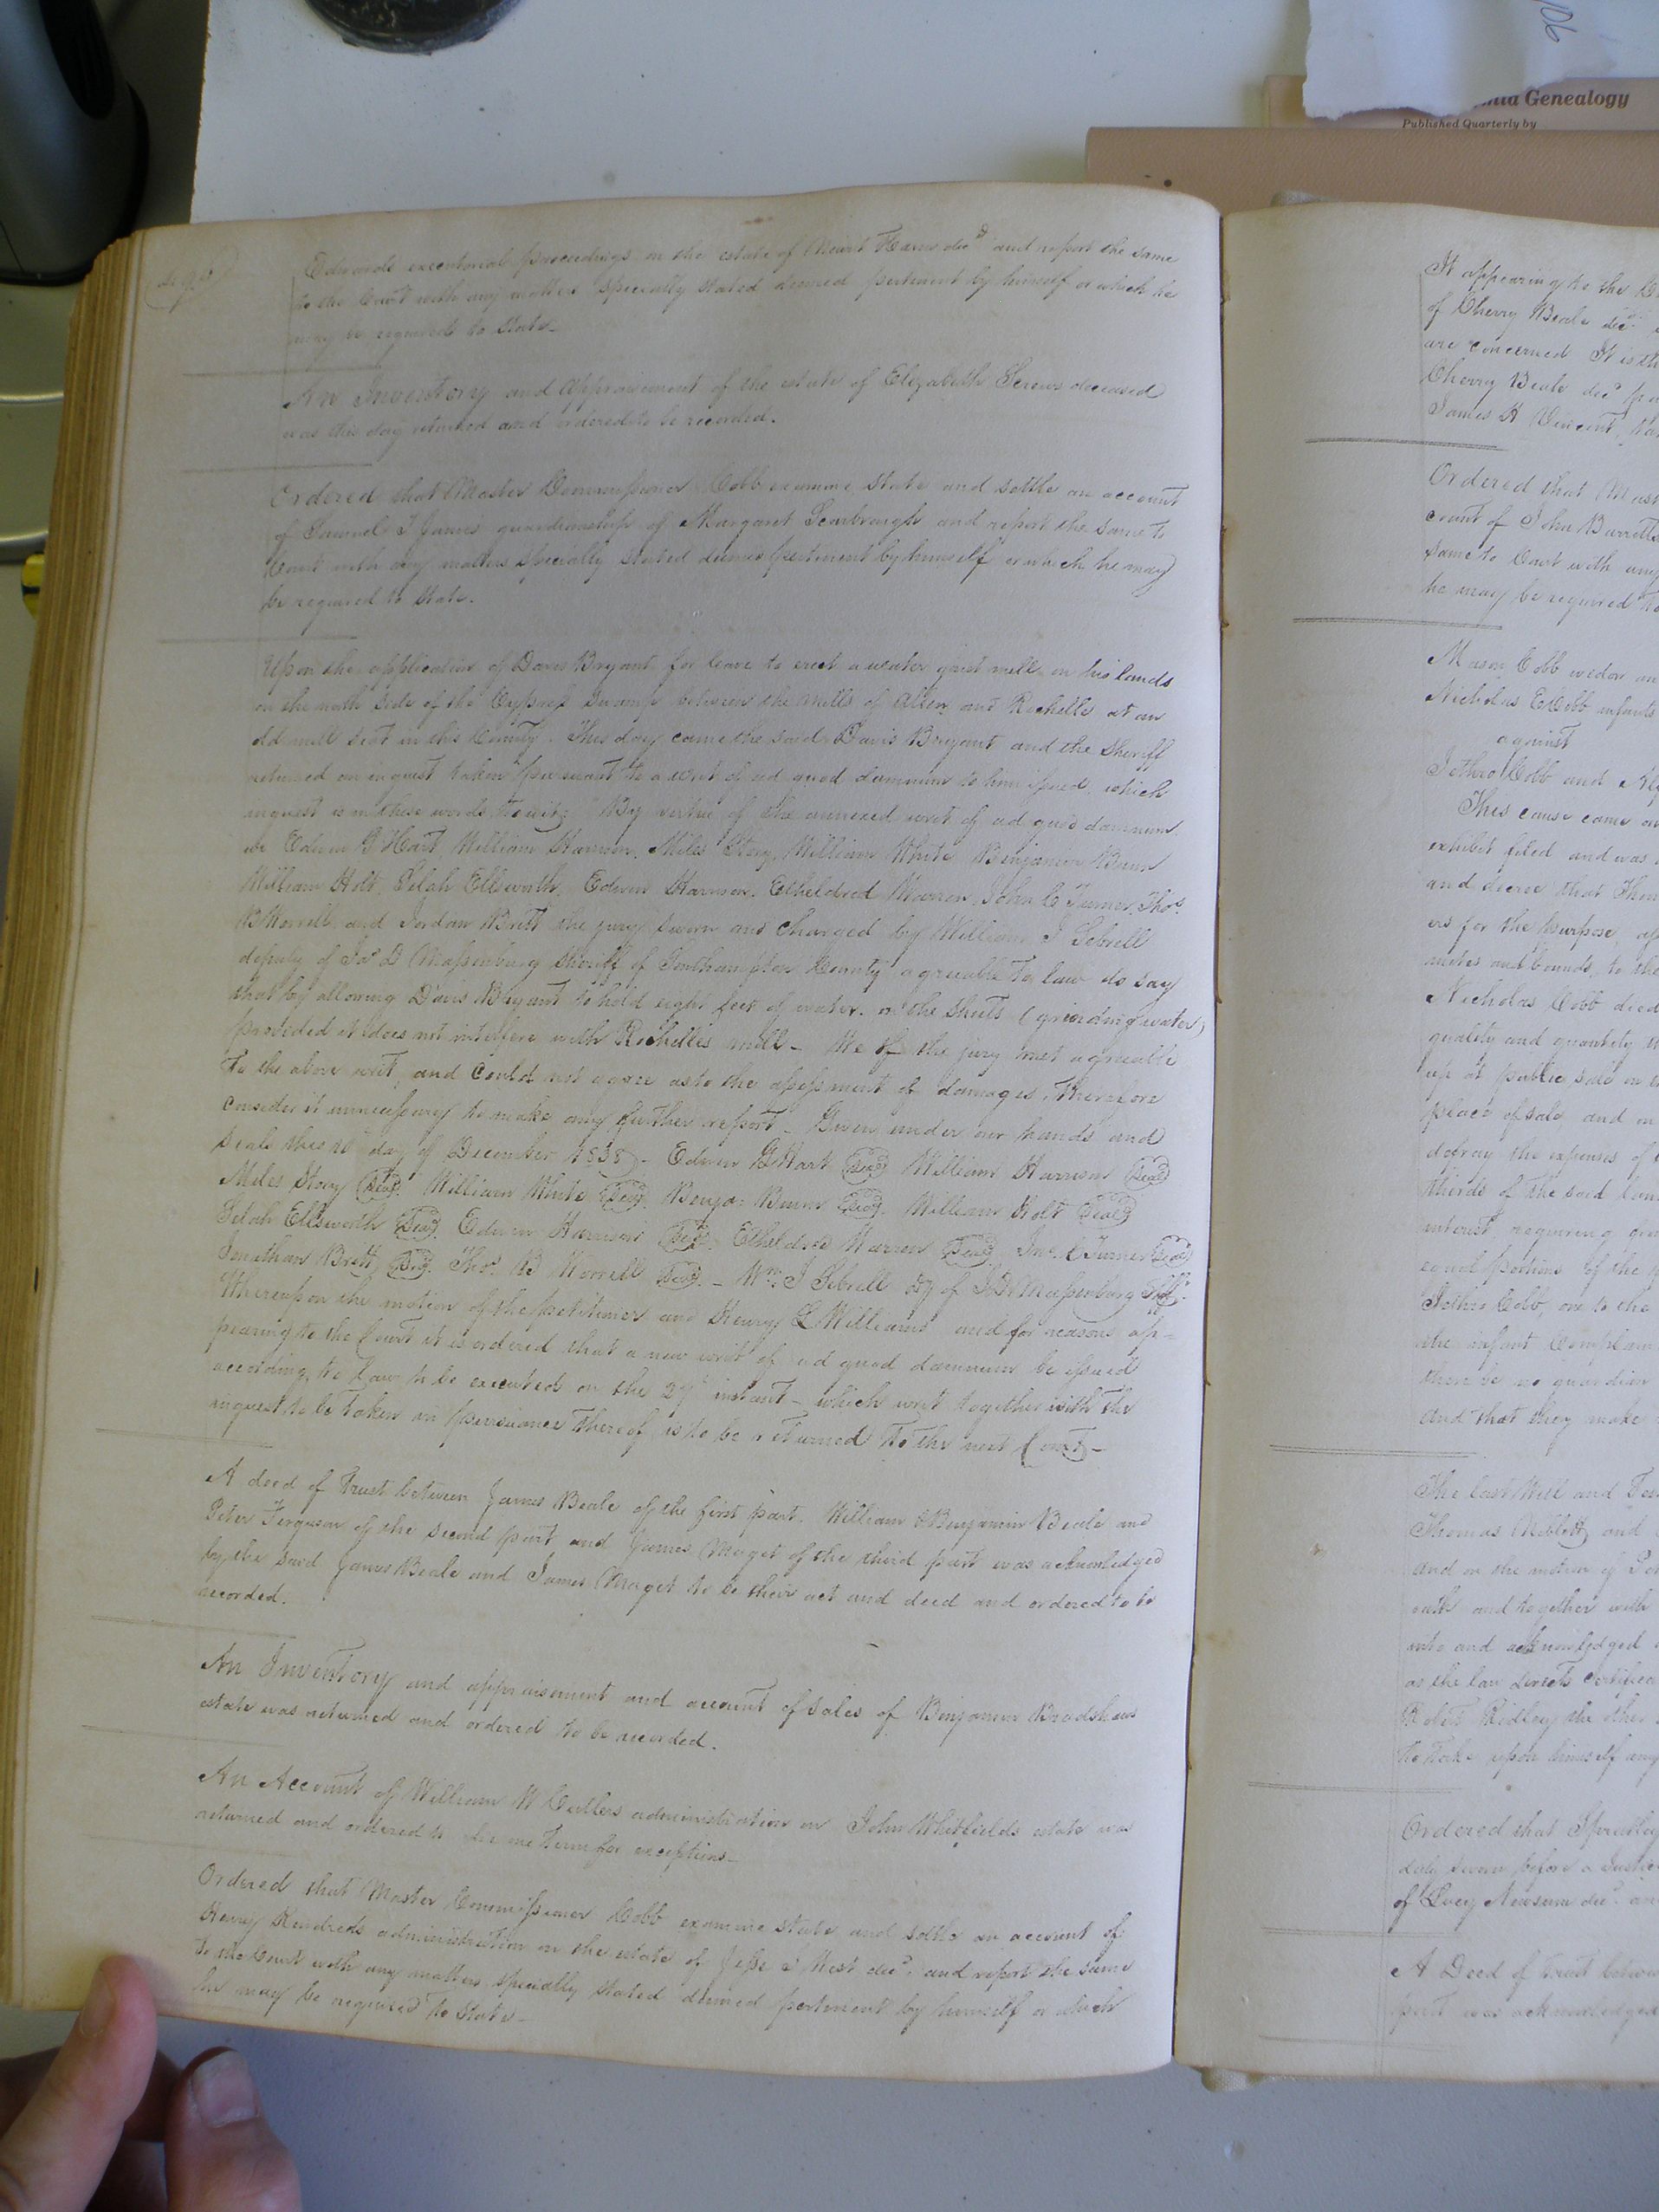 106
Genealogy
Published Quarterly by
Edwards executorial proceedings on the estate of Harris decd and report the same
to the Court with any matters specially stated deemed pertinent by himself or which he
may be required to state_
An Inventory and appraisement of the estate of Elizabeth Screws deceased
was this day returned and ordered to be recorded.
Ordered that Master Commissioner Cobb examine state and settle an account
of Samuel T James guardianship of Margaret Scarbrough and report the same to
Court with any matters specially stated deemed pertinent by himself or which he may
be required to state.
Upon the application of Davis Bryant for leave to erect a water grist mill on his lands
on the north side of the Cypress Swamp between the mills of and Rochelle at an
old mill seat in this County. This day came the said Davis Bryant and the Sheriff
returned an inquest taken pursuant to a writ of ad quod damnum to him issued, which
inquest is in these words to wit: "By virtue of the annexed writ of ad quod damnum
we Edwin G Hart, William Harrison, Miles Story, William White, Benjamin Bunn
William Holt, Selah Ellsworth, Edwin Harrison, Etheldred Warren, John C Turner, Thos.
B Worrell and Jordan Britt the jury sworn and charged by William J Sebrell
deputy of D Massenburg Sheriff of Southampton County agreeable to law do say
that by allowing Davis Bryant to hold eight feet of water, or the sheets (grinding water)
provided it does not interfere with Rochelles mill_ We of the jury met agreeable
to the above writ, and could not agree as to the assessment of damages, therefore
consider it unnecessary to make any further report_ Given under our hands and
seals this day of December 1838_ Edwin G Hart Seal William Harrison Seal
Miles Story Seal. William White Seal Benja: Bunn Seal. William Holt Seal
Selah Ellsworth Seal. Edwin Harrison Seal. Etheldred Warren Seal. Jno. C Turner Seal
Jonathan Britt Seal. Thos. B Worrell Seal._ Wm. J Sebrell Dy of Massenburg Shff.
Whereupon the motion of the petitioner and Henry Williams and for reasons ap=
pearing to the Court it is ordered that a new writ of ad quod damnum be issued
according to law to be executed on the 27t instant_ which writ together with the
inquest to be taken in pursuance thereof is to be returned to the next Court_
A deed of trust between James Beale of the first part. William & Benjamin Beale and
Peter Ferguson of the second part and James Maget of the third part was acknowledged
by the said James Beale and James Maget to be their act and deed and ordered to be
recorded.
An Inventory and appraisement and account of sales of Benjamin Bradshaws
estate was returned and ordered to be recorded.
An Account of William W Cutlers administration on John Whitfields estate was
returned and ordered to lie one term for exceptions_
Ordered that Master Commissioner Cobb examine state and settle an account of
Henry Kindreds administration on the estate of Jesse West decd. and report the same
to the Court with any matters specially stated deemed pertinent by himself or which
he may be required to state_
It appearing to the
of Cherry Beale decd.
are concerned It is
Cherry Beale decd
James H Vincent,
Ordered that
count of John Barrett
same to Court with any
he may be required to
Mason Cobb widow
Nicholas E Cobb infants
against
Jethro Cobb and
This cause came
exhibit filed and was
and decree that
ers for the purpose,
metes and bounds, to the
Nicholas Cobb died
quality and quantity
up at public sale
place of sale, and
defray the expenses of
thirds of the said
interest requiring
equal portions of the
Jethro Cobb, one to the
the infant Complain
there be no guardian
And that they make
The last Will and
Thomas Niblett and
and on the motion of
oath and together with
into and acknowledged
as the law directs certificate
Robert Ridley the other
to take upon himself any
Ordered that Spratley
duly sworn before a Justice
of Lucy Newsum decd.
A Deed of trust between
part was acknowledged